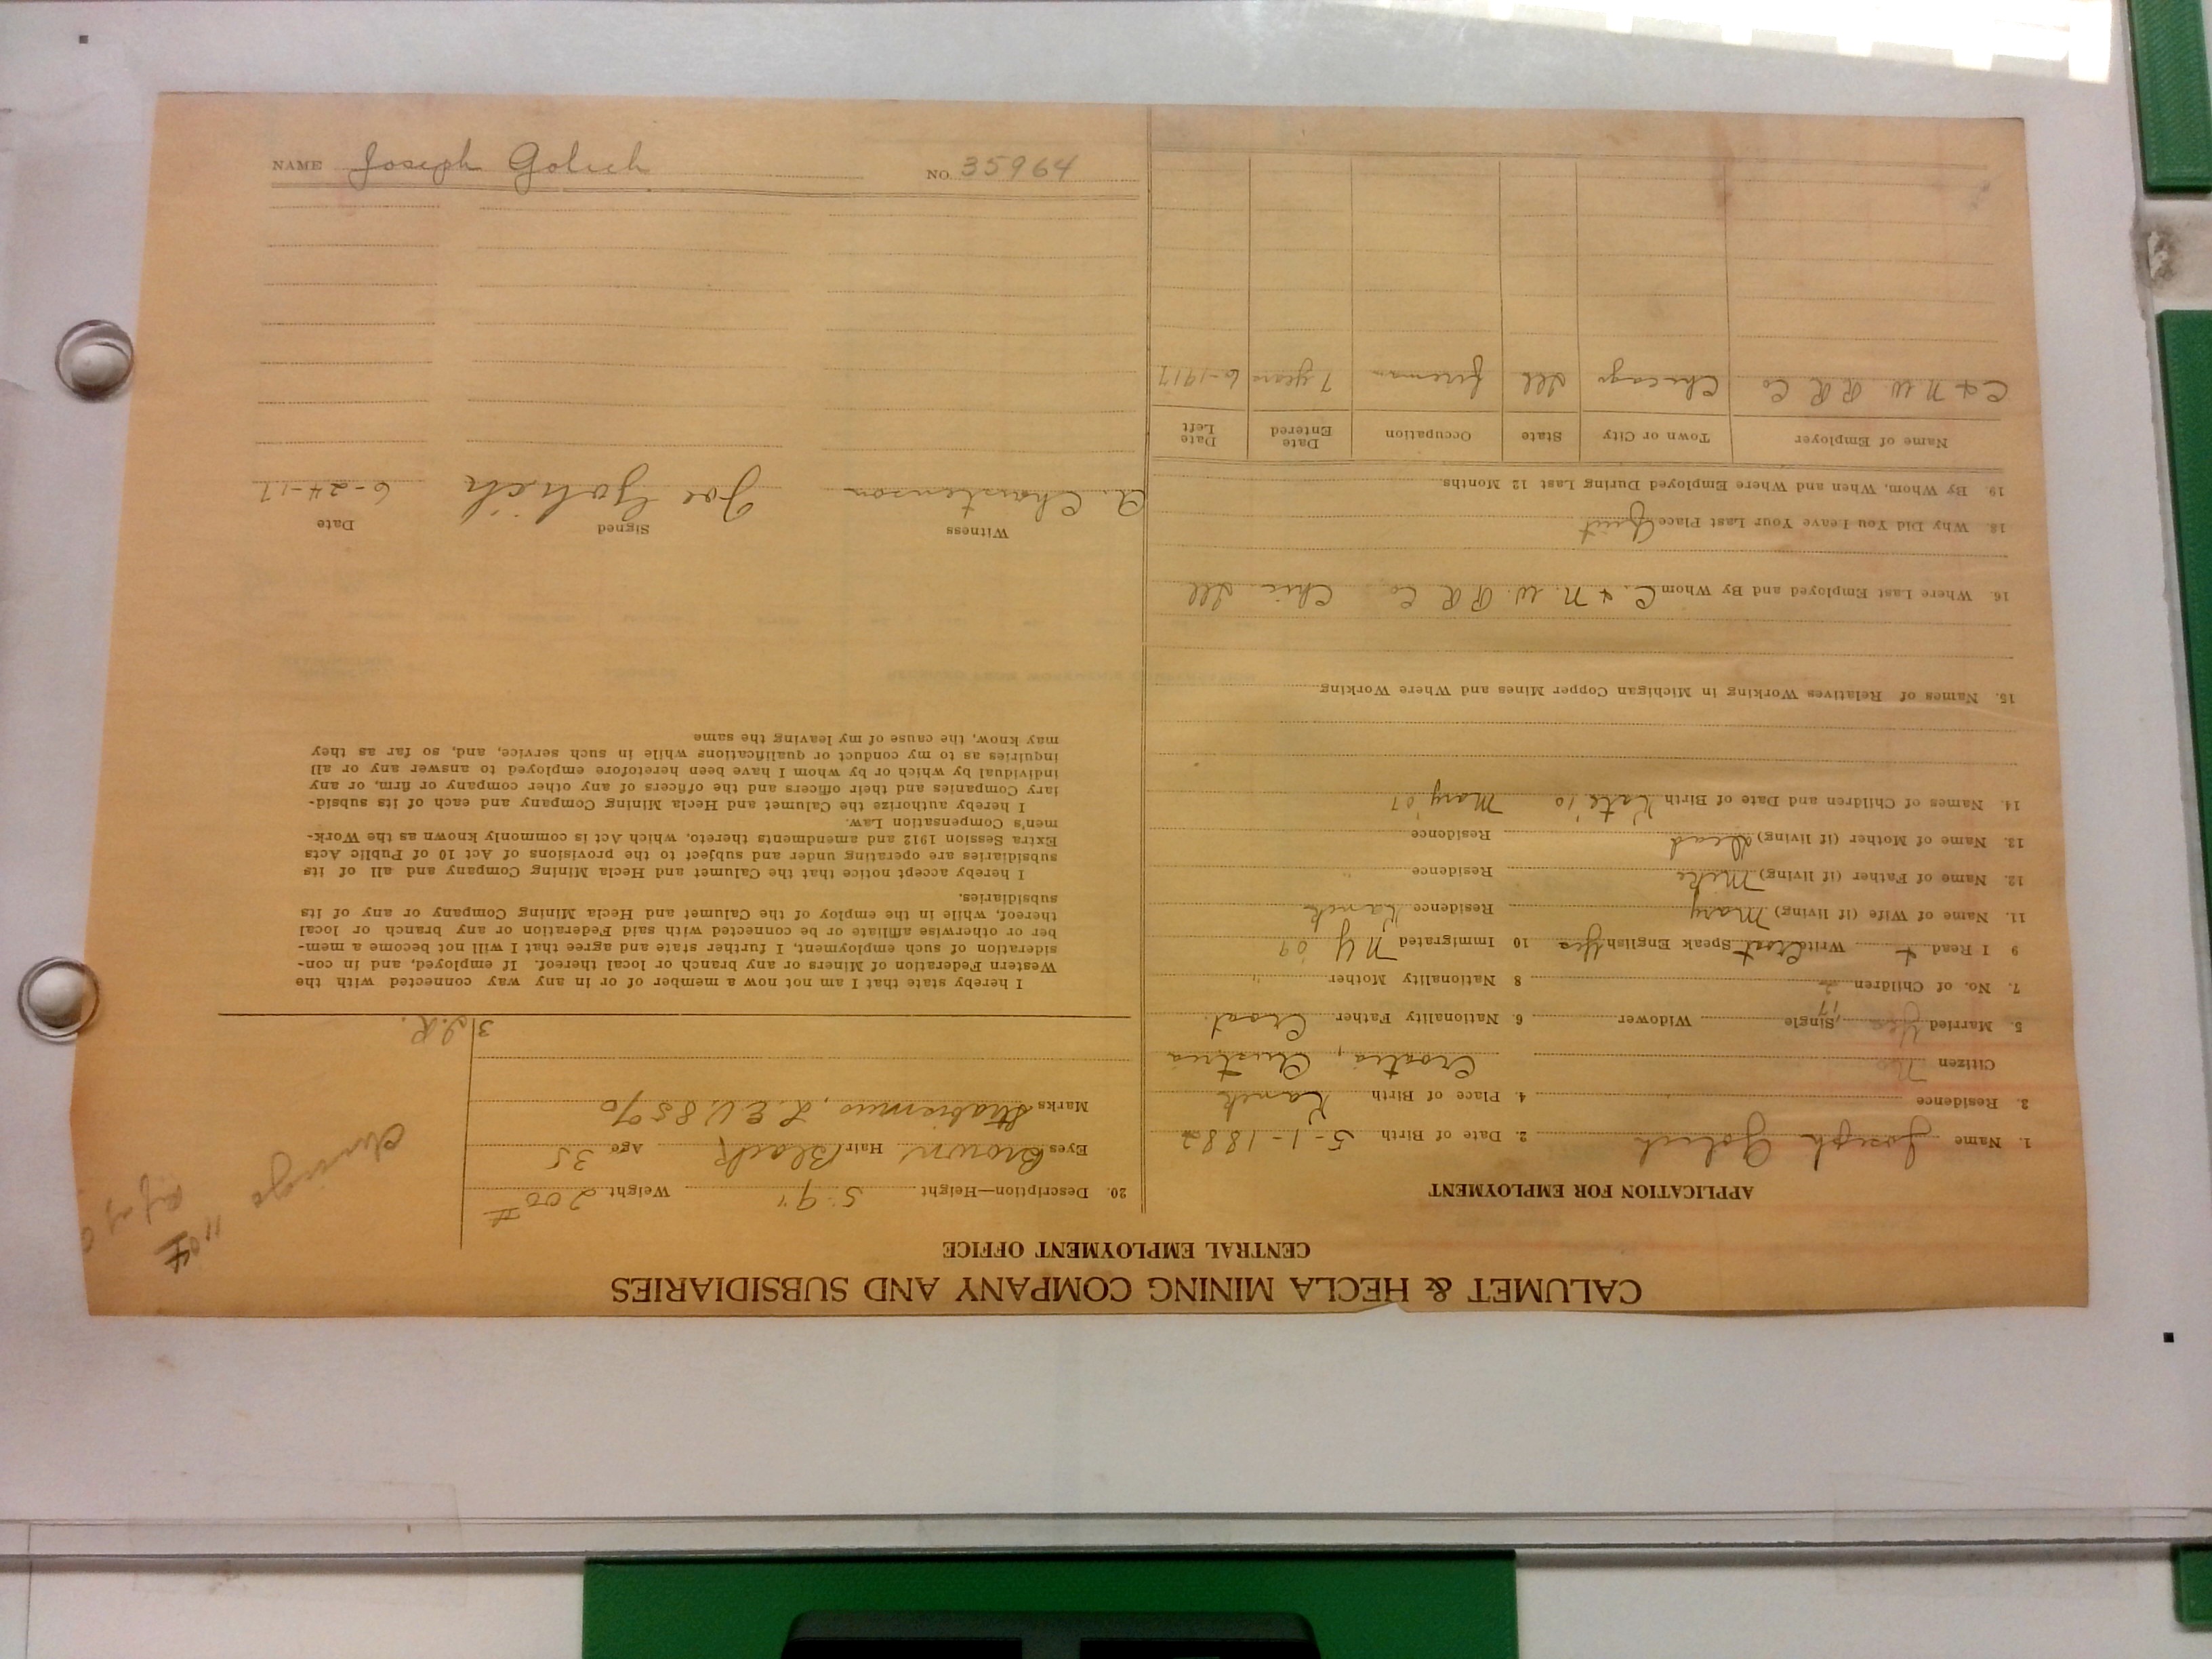 CALUMET & HECLA MINING COMPANY AND SUBSIDIARIES
CENTRAL EMPLOYMENT OFFICE
APPLICATION FOR EMPLOYMENT
1. Name Joseph Golich 2. Date of Birth 5-1-1882
3. Residence 4. Place of Birth Kanck
Citizen No Croatia, Austria
5. Married Yes, 17 Single Widower 6. Nationality Father Croat.
7. No. of Children 2 8 Nationality Mother "
9 I Read + Write Croat Speak English Yes 10 Immigrated N Y 09
11. Name of Wife (if living) Mary Residence Kanck
12. Name of Father (if living) Mike Residence
13. Name of Mother (if living) Dead Residence
14. Names of Children and Date of Birth Kate '10 Mary '07
15. Names of Relatives Working in Michigan Copper Mines and Where Working
16. Where Last Employed and By Whom C. & N. W. R R Co. Chic. Ill
18. Why Did You Leave Your Last Place Quit
19. By Whom, When and Where Employed During Last 12 Months
Name of Employer Town or City State Occupation Date Entered Date Left
C & N W R R Co Chicago Ill fireman 7 years 6-1917
20. Description—Height 5' 9" Weight 200 #
Eyes Brown Hair Black Age 35
Marks Strabismus, L.E.V. 85%
3 J.R.
Chicago
I hereby state that I am not now a member of or in any way connected with the
Western Federation of Miners or any branch or local thereof. If employed, and in con-
sideration of such employment, I further state and agree that I will not become a mem-
ber or otherwise affiliate or be connected with said Federation or any branch or local
thereof, while in the employ of the Calumet and Hecla Mining Company or any of its
subsidiaries.
I hereby accept notice that the Calumet and Hecla Mining Company and all of its
subsidiaries are operating under and subject to the provisions of Act 10 of Public Acts
Extra Session 1912 and amendments thereto, which Act is commonly known as the Work-
men's Compensation Law.
I hereby authorize the Calumet and Hecla Mining Company and each of its subsid-
iary Companies and their officers and the officers of any other company or firm, or any
individual by which or by whom I have been heretofore employed to answer any or all
inquiries as to my conduct or qualifications while in such service, and, so far as they
may know, the cause of my leaving the same
Witness Signed Date
A. Christenson Joe Golich 6-24-17
NAME Joseph Golich NO. 35964